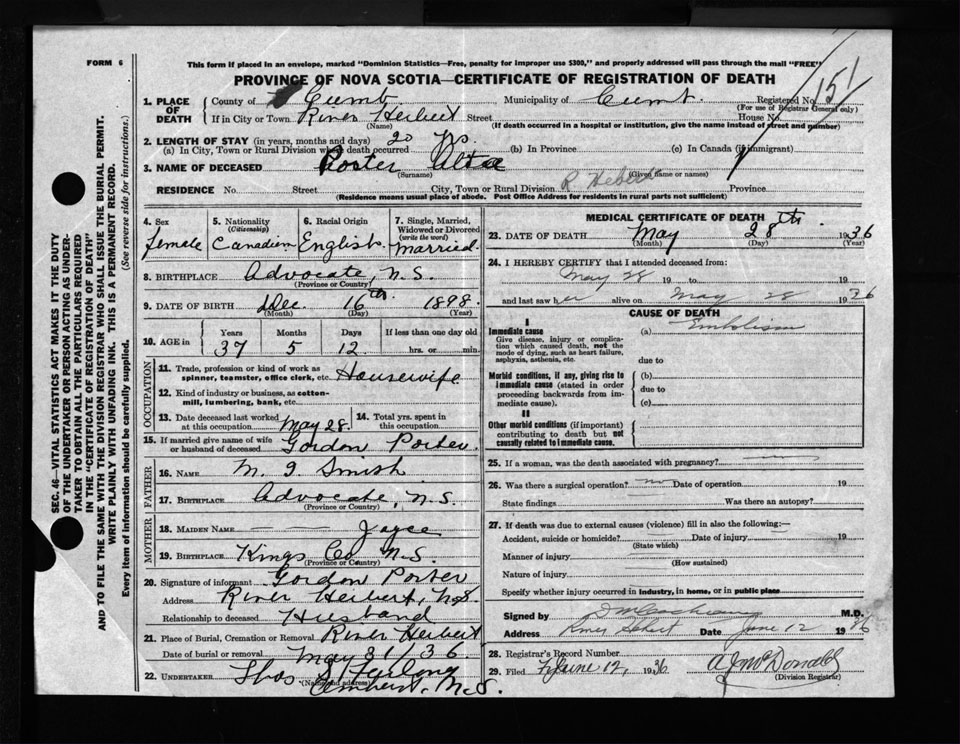 FORM 6
This form if placed in an envelope, marked "Dominion Statistics—Free, penalty for improper use $300," and properly addressed will pass through the mail "FREE"
PROVINCE OF NOVA SCOTIA—CERTIFICATE OF REGISTRATION OF DEATH
151
1. PLACE OF DEATH County of Cumb. Municipality of Cumb. Registered No.
(For use of Registrar General only)
If in City or Town River Herbert Street House No.
(Name) (If death occurred in a hospital or institution, give the name instead of street and number)
2. LENGTH OF STAY (in years, months and days) 20 yrs.
(a) In City, Town or Rural Division where death occurred (b) In Province (c) In Canada (if immigrant)
3. NAME OF DECEASED Porter Alta
(Surname) (Given name or names)
RESIDENCE No. Street City, Town or Rural Division R Hebert Province
(Residence means usual place of abode. Post Office Address for residents in rural parts not sufficient)
SEC. 46—VITAL STATISTICS ACT MAKES IT THE DUTY
OF THE UNDERTAKER OR PERSON ACTING AS UNDER-
TAKER TO OBTAIN ALL THE PARTICULARS REQUIRED
IN THE "CERTIFICATE OF REGISTRATION OF DEATH"
AND TO FILE THE SAME WITH THE DIVISION REGISTRAR WHO SHALL ISSUE THE BURIAL PERMIT.
WRITE PLAINLY WITH UNFADING INK. THIS IS A PERMANENT RECORD.
Every item of information should be carefully supplied. (See reverse side for instructions.)
4. Sex 5. Nationality (Citizenship) 6. Racial Origin 7. Single, Married, Widowed or Divorced (write the word)
female Canadien English Married
8. BIRTHPLACE Advocate, N.S.
(Province or Country)
9. DATE OF BIRTH Dec. 16th 1898.
(Month) (Day) (Year)
10. AGE in Years Months Days If less than one day old
37 5 12 hrs. or min.
OCCUPATION
11. Trade, profession or kind of work as spinner, teamster, office clerk, etc. Housewife
12. Kind of industry or business, as cotton-mill, lumbering, bank, etc.
13. Date deceased last worked at this occupation May 28. 14. Total yrs. spent in this occupation
15. If married give name of wife or husband of deceased Gordon Porter
FATHER
16. NAME M. I Smith
17. BIRTHPLACE Advocate, N.S.
(Province or Country)
MOTHER
18. MAIDEN NAME Jayce
19. BIRTHPLACE Kings Co N.S.
(Province or Country)
20. Signature of informant Gordon Porter
Address River Herbert, N.S.
Relationship to deceased Husband
21. Place of Burial, Cremation or Removal River Herbert
Date of burial or removal May 31/36
22. UNDERTAKER Thos S Furlong
(Name and address)
Amherst. N.S.
MEDICAL CERTIFICATE OF DEATH
23. DATE OF DEATH May 28th 1936
(Month) (Day) (Year)
24. I HEREBY CERTIFY that I attended deceased from:
May 28 19 to 19
and last saw her alive on May 28 1936
CAUSE OF DEATH
I
Immediate cause
Give disease, injury or complication which caused death, not the mode of dying, such as heart failure, asphyxia, asthenia, etc.
(a) Embolism
due to
Morbid conditions, if any, giving rise to immediate cause (stated in order proceeding backwards from immediate cause).
(b)
due to
(c)
II
Other morbid conditions (if important) contributing to death but not causally related to immediate cause.
25. If a woman, was the death associated with pregnancy?
26. Was there a surgical operation? no Date of operation 19
State findings Was there an autopsy?
27. If death was due to external causes (violence) fill in also the following:—
Accident, suicide or homicide? Date of injury 19
(State which)
Manner of injury
(How sustained)
Nature of injury
Specify whether injury occurred in industry, in home, or in public place
Signed by M.D.
Address River Hebert Date June 12 1936
28. Registrar's Record Number
29. Filed June 12, 1936 A.J. McDonald
(Division Registrar)